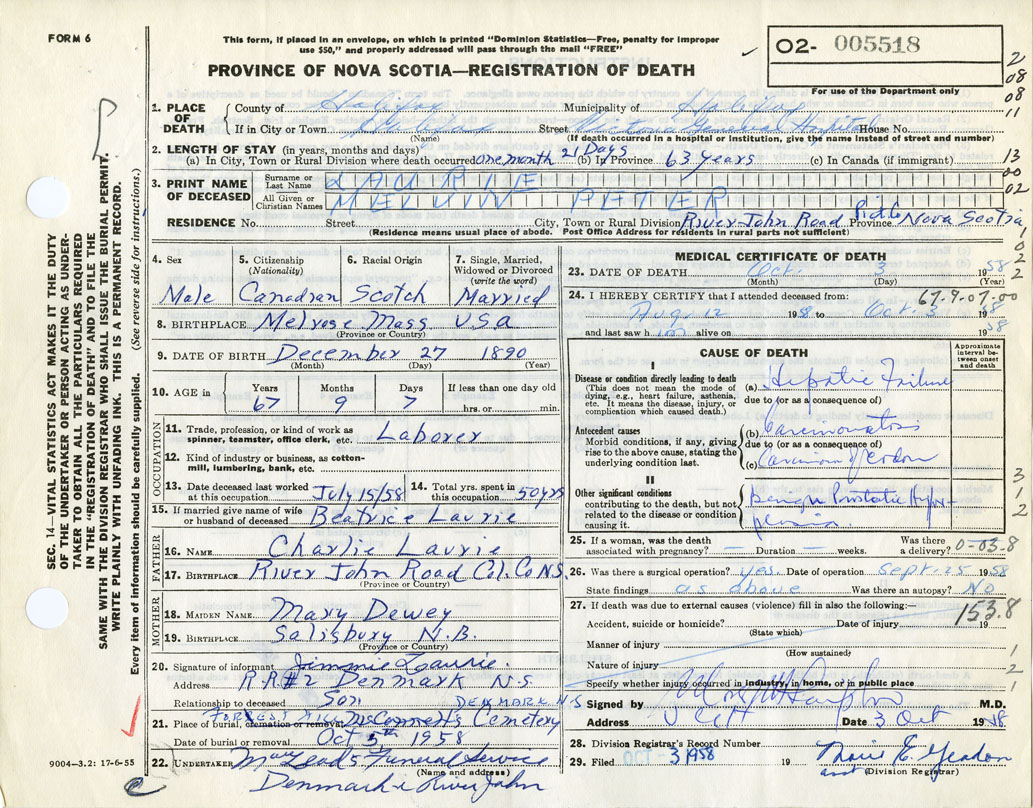 FORM 6
This form, if placed in an envelope, on which is printed "Dominion Statistics—Free, penalty for improper
use $50," and properly addressed will pass through the mail "FREE"
PROVINCE OF NOVA SCOTIA—REGISTRATION OF DEATH
02- 005518
For use of the Department only
2
08
08
11
13
00
02
1
0
2
2
SEC. 14—VITAL STATISTICS ACT MAKES IT THE DUTY
OF THE UNDERTAKER OR PERSON ACTING AS UNDER-
TAKER TO OBTAIN ALL THE PARTICULARS REQUIRED
IN THE "REGISTRATION OF DEATH" AND TO FILE THE
SAME WITH THE DIVISION REGISTRAR WHO SHALL ISSUE THE BURIAL PERMIT.
WRITE PLAINLY WITH UNFADING INK. THIS IS A PERMANENT RECORD.
Every item of information should be carefully supplied. (See reverse side for instructions.)
1. PLACE OF DEATH
County of Halifax Municipality of Halifax
If in City or Town Halifax Street Victoria General Hospital House No.
(Name) (If death occurred in a hospital or institution, give its name instead of street and number)
2. LENGTH OF STAY (in years, months and days)
(a) In City, Town or Rural Division where death occurred one month 21 Days (b) In Province 63 years (c) In Canada (if immigrant)
3. PRINT NAME OF DECEASED
Surname or Last Name LAURIE
All Given or Christian Names MELVIN PETER
RESIDENCE No. Street City, Town or Rural Division River John Road Province Nova Scotia
(Residence means usual place of abode. Post Office Address for residents in rural parts not sufficient)
4. Sex Male
5. Citizenship (Nationality) Canadian
6. Racial Origin Scotch
7. Single, Married, Widowed or Divorced (write the word) Married
8. BIRTHPLACE Melrose Mass USA
(Province or Country)
9. DATE OF BIRTH December 27 1890
(Month) (Day) (Year)
10. AGE in Years 67 Months 9 Days 7 If less than one day old hrs. or min.
OCCUPATION
11. Trade, profession, or kind of work as spinner, teamster, office clerk, etc. Laborer
12. Kind of industry or business, as cotton-mill, lumbering, bank, etc.
13. Date deceased last worked at this occupation July 15/58
14. Total yrs. spent in this occupation 50 yrs
15. If married give name of wife or husband of deceased Beatrice Laurie
FATHER
16. NAME Charlie Laurie
17. BIRTHPLACE River John Road Col. Co N.S.
(Province or Country)
MOTHER
18. MAIDEN NAME Mary Dewey
19. BIRTHPLACE Salisbury N.B.
(Province or Country)
20. Signature of informant Jimmie Laurie.
Address RR#2 Denmark N.S
Relationship to deceased Son DENMARK N.S
21. Place of burial, cremation or removal McConnell's Cemetery
Date of burial or removal Oct 5th 1958
22. UNDERTAKER Funeral Service
(Name and address)
Denmark & River John
9004—3.2: 17-6-55
MEDICAL CERTIFICATE OF DEATH
23. DATE OF DEATH Oct. 3 1958
(Month) (Day) (Year)
24. I HEREBY CERTIFY that I attended deceased from: 67-9-07-00
Aug 12 1958 to Oct. 3 1958
and last saw him alive on 1958
CAUSE OF DEATH
Approximate interval between onset and death
I
Disease or condition directly leading to death
(This does not mean the mode of dying, e.g., heart failure, asthenia, etc. It means the disease, injury, or complication which caused death.)
(a) Hepatic Failure
due to (or as a consequence of)
Antecedent causes
Morbid conditions, if any, giving rise to the above cause, stating the underlying condition last.
(b) Carcinomatosis
due to (or as a consequence of)
(c) Carcinoma of colon
II
Other significant conditions
contributing to the death, but not related to the disease or condition causing it.
Benign Prostatic Hyper-
plasia
3
1
2
25. If a woman, was the death associated with pregnancy? — Duration — weeks. Was there a delivery? 0-03-8
26. Was there a surgical operation? yes. Date of operation Sept. 25 1958
State findings as above Was there an autopsy? No
27. If death was due to external causes (violence) fill in also the following:—
153.8
Accident, suicide or homicide? Date of injury 19
(State which)
Manner of injury 1
(How sustained)
Nature of injury 2
Specify whether injury occurred in industry, in home, or in public place 1
Signed by M.D.
Address Date 3 Oct 1958
28. Division Registrar's Record Number
29. Filed 3 1958 19
(Division Registrar)